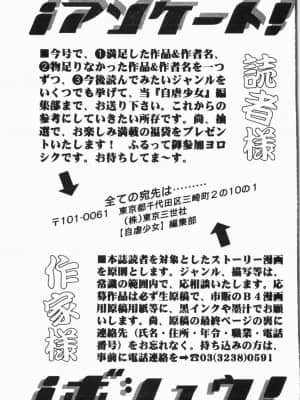 ¡アンケート!
読者様
■今号で、❶満足した作品&作者名、
❷物足りなかった作品&作者名を一つ
ずつ、❸今後読んでみたいジャンルを
いくつでも挙げて、当『自虐少女』編
集部まで、お送り下さい。これからの
参考にしていきたい所存です。尚、抽
選で、お楽しみ満載の福袋をプレゼン
トいたします! ふるって御参加ヨロ
シクです。お待ちしてま〜す。
全ての宛先は………
〒101-0061 東京都千代田区三崎町2の10の1
(株)東京三世社
【自虐少女】編集部
作家様
■本誌読者を対象としたストーリー漫画
を原則とします。ジャンル、描写等は、
常識の範囲内で、応相談いたします。応
募作品は必ず生原稿で、市販のB4漫画
用原稿用紙等に、黒インクや墨汁でお願
いします。尚、原稿の最終ページの裏に
連絡先(氏名・住所・年令・職業・電話
番号)をお忘れなく。持ち込みの方は、
事前に電話連絡を➡☎03(3238)0591
¡ボシュウ!